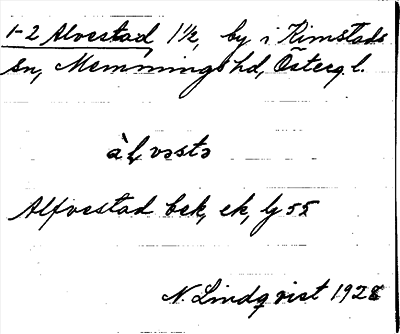 1-2 Alvestad 1½, by i Kimstads
sn, Memmings hd, Österg. l.
àl̨vəstə
Alfvestad bek, ek, lj 55
N. Lindqvist 1928